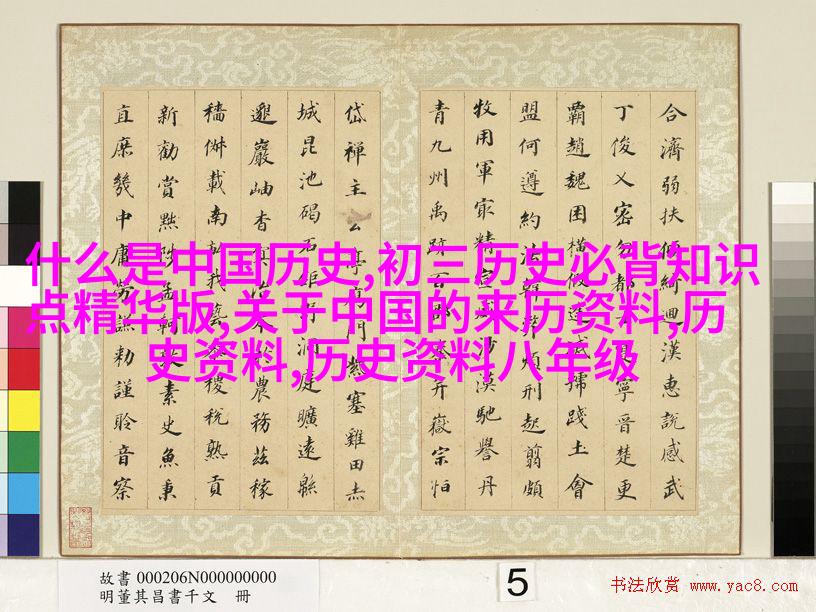 什么是中国历史,初三历史必背知识
点精华版,关于中国的来历资料,历
史资料,历史资料八年级
合濟弱扶傾綺迴漢惠說感武
丁俊乂密勿多士寔寧晉楚更
霸趙魏困橫假途滅虢踐土會
盟何遵約法韓弊煩刑起翦頗
牧用軍最精宣威沙漠馳譽丹
青九州禹跡百郡秦并嶽宗恒
岱禪主云亭雁門紫塞雞田赤
城昆池碣石鉅野洞庭曠遠緜
邈巖岫杳冥治本於農務茲稼
穡俶載南畝我藝黍稷稅熟貢
新勸賞黜陟孟軻敦素史魚秉
直庶幾中庸勞謙勑謹聆音察
故書 000206N000000000
明董其昌書千文 冊
5
书法欣赏 www.yac8.com